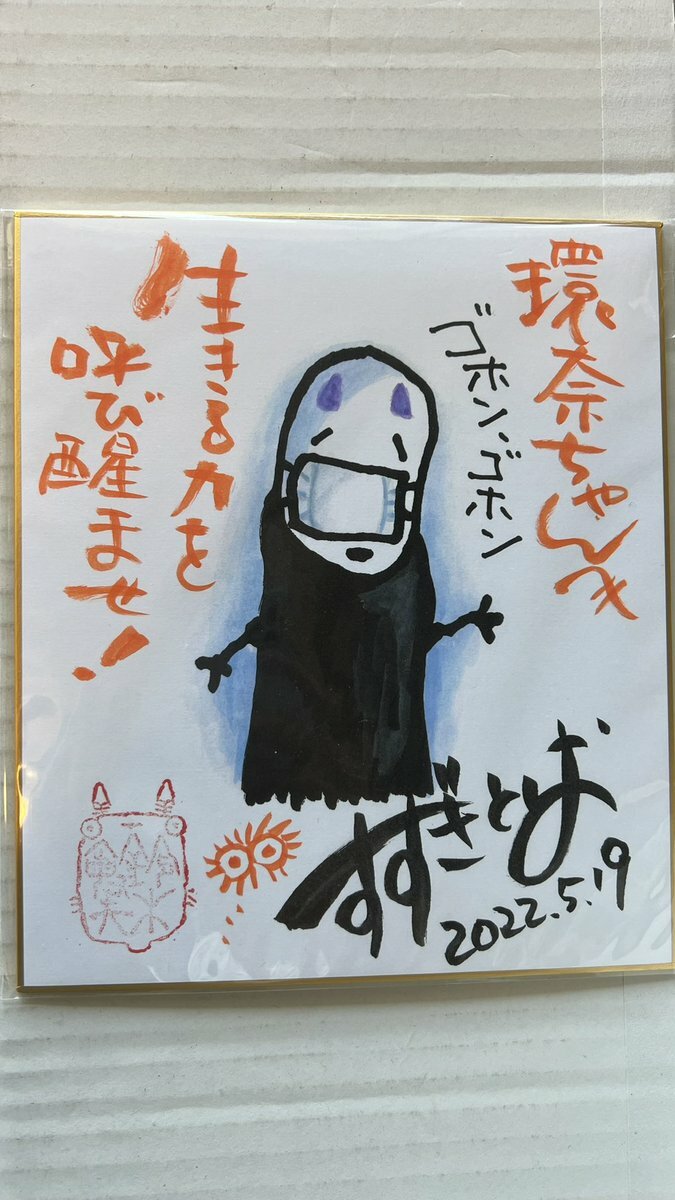 環奈ちゃんへ
ゴホン、ゴホン
生きる力を
呼び醒ませ!
すずきとしお
2022.5.19